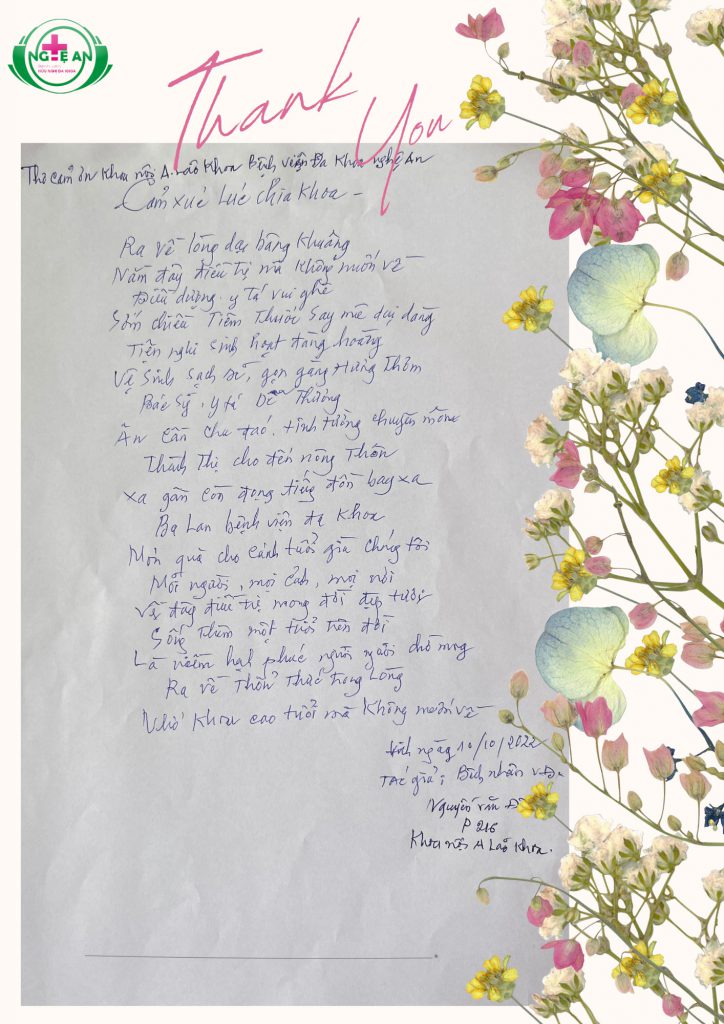 NGHỆ AN
HỮU NGHỊ ĐA KHOA
Thank You
Thơ cảm ơn Khoa nội A. Lão Khoa Bệnh viện Đa Khoa nghệ An
Cảm xúc Lúc chia Khoa -
Ra về lòng dạ bâng khuâng
Nằm đây điều trị mà không muốn về
Điều dưỡng. y tá vui ghê
Sớm chiều Tiêm Thuốc say mê dịu dàng
Tiện nghi sinh hoạt đàng hoàng
Vệ sinh sạch sẽ, gọn gàng Hương Thơm
Bác sỹ, y tá Dễ Thương
Ân Cần chu đáo. tinh tường chuyên môn
Thành Thị cho đến nông Thôn
xa gần còn đọng tiếng đồn bay xa
Ba Lan bệnh viện đa khoa
Món quà cho cảnh tuổi già chúng tôi
Mỗi người, mọi cảnh, mọi nơi
Về đây điều trị mong đời đẹp tươi
Sống Thêm một tuổi trên đời
Là niềm hạnh phúc người người chờ mong
Ra về Thổn Thức trong Lòng
Nhớ Khoa cao tuổi mà Không muốn về
Vinh ngày 10/10/2022
Tác giả: Bệnh nhân
Nguyễn văn
P 216
Khoa nội A Lão Khoa.